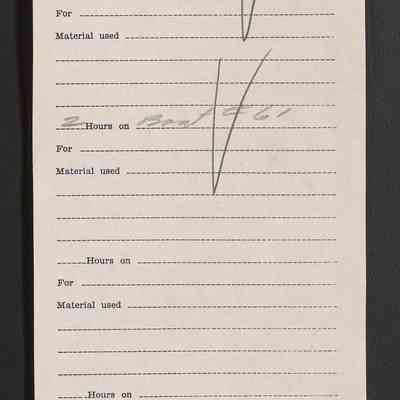 For
Material used
2 Hours on Boat #61
For
Material used
Hours on
For
Material used
Hours on